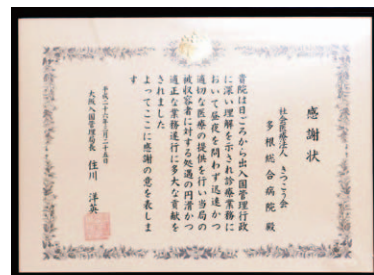 感謝状
社会医療法人 きつこう会
多根総合病院 殿
貴院は日ごろから出入国管理行政
に深い理解を示され診療業務に
おいて昼夜を問わず迅速かつ
適切な医療の提供を行い当局の
被収容者に対する処遇の円滑かつ
適正な業務遂行に多大な貢献を
されました
よってここに感謝の意を表しま
す
平成二十六年三月二十五日
大阪入国管理局長 住川 洋英